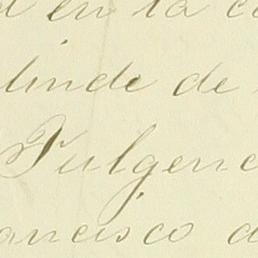 en la
linde de
Fulgenc
ancisco d